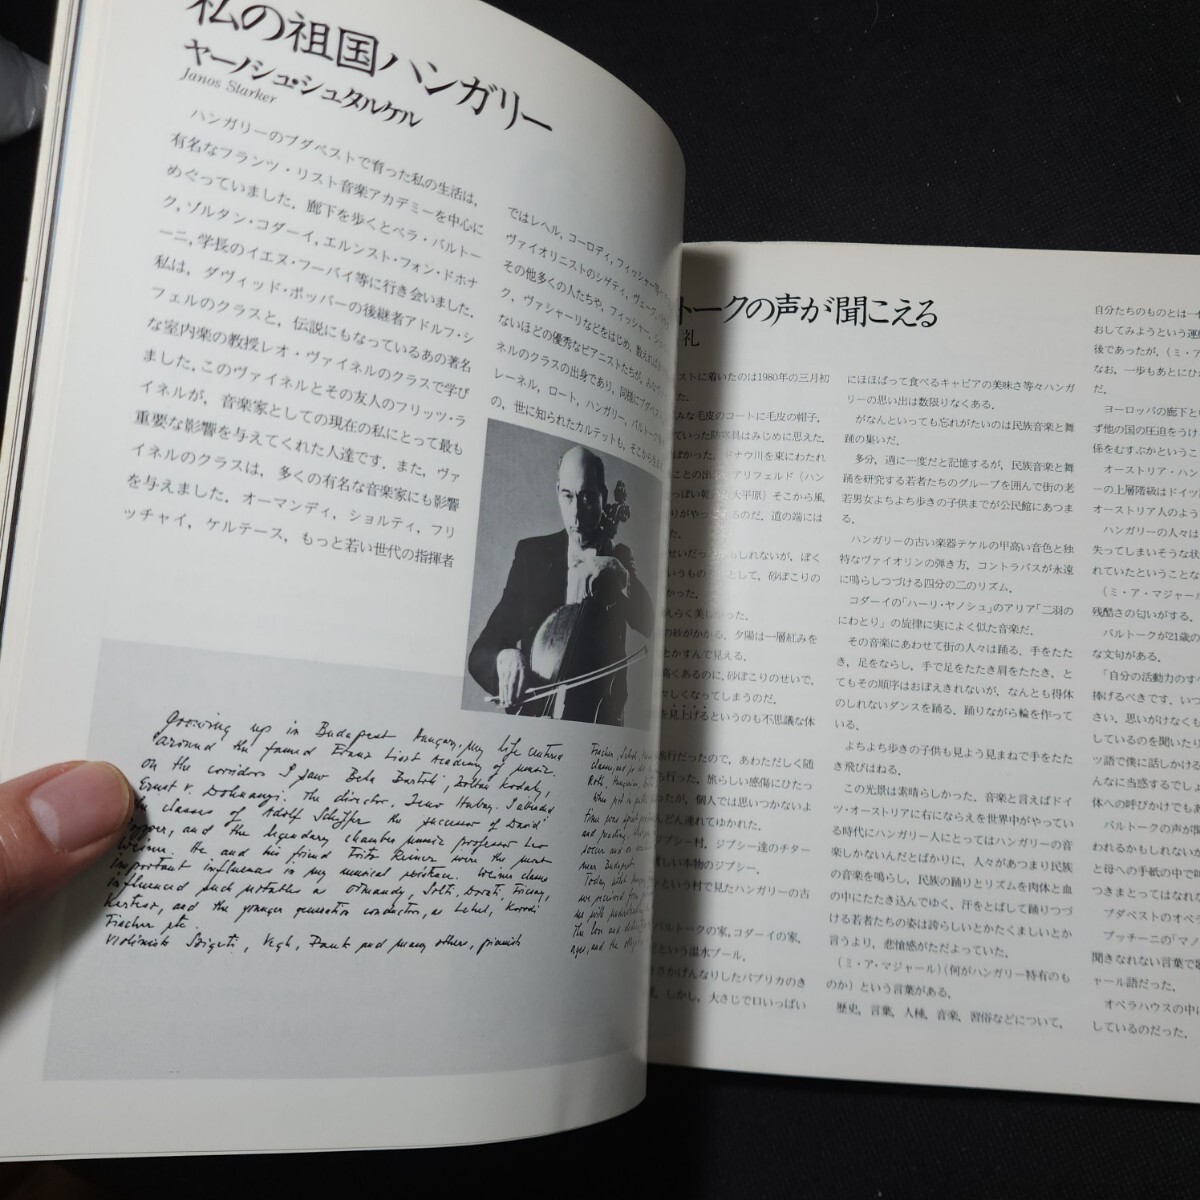 私の祖国ハンガリー
ヤーノシュ・シュタルケル
Janos Starker
ハンガリーのブダペストで育った私の生活は,
有名なフランツ・リスト音楽アカデミーを中心に
めぐっていました. 廊下を歩くとベラ・バルトー
ク, ゾルタン・コダーイ, エルンスト・フォン・ドホナ
ーニ, 学長のイエヌ・フーバイ等に行き会いました.
私は, ダヴィッド・ポッパーの後継者アドルフ・シ
フェルのクラスと, 伝説にもなっているあの著名
な室内楽の教授レオ・ヴァイネルのクラスで学び
ました. このヴァイネルとその友人のフリッツ・ラ
イネルが, 音楽家としての現在の私にとって最も
重要な影響を与えてくれた人達です. また, ヴァ
イネルのクラスは, 多くの有名な音楽家にも影響
を与えました. オーマンディ, ショルティ, フリ
ッチャイ, ケルテース, もっと若い世代の指揮者
ではレヘル, コーロディ, フィッシャー
ヴァイオリニストのシゲティ, ヴェーグ,
その他多くの人たちや, フィッシャー,
ク, ヴァシャーリなどをはじめ, 数えれば
ないほどの優秀なピアニストたちが,
ネルのクラスの出身であり, 同様に
レーネル, ロート, ハンガリー, バルトーク
の, 世に知られたカルテットも, そこから
Growing up in Budapest Hungary, my life centered
around the famed Franz Liszt Academy of music.
on the corridors I saw Bela Bartók, Zoltan Kodaly,
Ernst v. Dohnanyi. The director, Jeno Hubay. I attended
classes of Adolf Schiffer the successor of David
and the legendary chamber music professor Leo
Weiner. He and his friend Fritz Reiner were the most
important influences in my musical existence. Weiner classes
influenced such notables as Ormandy, Solti, Dorati, Fricsay,
Kertesz, and the younger generation conductors, as Lehel, Korodi
Fischer etc.
Violinists Szigeti, Vegh, and many others, pianists
トークの声が聞こえる
礼
ストに着いたのは1980年の三月初
た.
みな毛皮のコートに毛皮の帽子,
ていった防寒具はみじめに思えた.
ドナウ川を東にわたれ
アリフェルド(ハン
大平原) そこから風
るのだ. 道の端には
しれないが, ぼく
として, 砂ぼこりの
かった.
えらく美しかった.
の砂がかかる. 夕陽は一層紅みを
とかすんで見える.
高くあるのに, 砂ぼこりのせいで,
しくなってしまうのだ.
を見上げるというのも不思議な体
旅行だったので, あわただしく随
行った. 旅らしい感傷にひた
ったが, 個人では思いつかないよ
どんどん連れてゆかれた.
ジプシー村. ジプシー達のチター
しい本物のジプシー.
という村で見たハンガリーの古
バルトークの家, コダーイの家,
という温水プール.
さかげんなりしたパプリカのき
しかし, 大さじで口いっぱい
にほほばって食べるキャビアの美味さ等々ハンガ
リーの思い出は数限りなくある.
がなんといっても忘れがたいのは民族音楽と舞
踊の集いだ.
多分, 週に一度だと記憶するが, 民族音楽と舞
踊を研究する若者たちのグループを囲んで街の老
若男女よちよち歩きの子供までが公民館にあつま
る.
ハンガリーの古い楽器テケルの甲高い音色と独
特なヴァイオリンの弾き方, コントラバスが永遠
に鳴らしつづける四分の二のリズム.
コダーイの「ハーリ・ヤノシュ」のアリア「二羽の
にわとり」の旋律に実によく似た音楽だ.
その音楽にあわせて街の人々は踊る. 手をたた
き, 足をならし, 手で足をたたき肩をたたき, と
てもその順序はおぼえきれないが, なんとも得体
のしれないダンスを踊る. 踊りながら輪を作って
いる.
よちよち歩きの子供も見よう見まねで手をたた
き飛びはねる.
この光景は素晴らしかった. 音楽と言えばドイ
ツ・オーストリアに右にならえを世界中がやってい
る時代にハンガリー人にとってはハンガリーの音
楽しかないんだとばかりに, 人々があつまり民族
の音楽を鳴らし, 民族の踊りとリズムを肉体と血
の中にたたき込んでゆく, 汗をとばして踊りつづ
ける若者たちの姿は誇らしいとかたくましいとか
言うより, 悲愴感がただよっていた.
(ミ・ア・マジャール)(何がハンガリー特有のも
のか)という言葉がある.
歴史, 言葉, 人種, 音楽, 習俗などについて,
自分たちのものとは一
おしてみようという運
後であったが, (ミ・ア
なお, 一歩もあとにひ
だ.
ヨーロッパの廊下と
ず他の国の圧迫をうけ
係をむすぶかというこ
オーストリア・ハン
ーの上層階級はドイツ
オーストリア人のよう
ハンガリーの人々は
失ってしまいそうな状
れていたということな
(ミ・ア・マジャール
残酷さの匂いがする.
バルトークが21歳の
な文句がある.
「自分の活動力のすべ
捧げるべきです. いつ
さい. 思いがけなくも
しているのを聞いたり
ツ語で僕に話しかける
んなに当惑するでしょ
体への呼びかけでもよ
バルトークの声が聞
われるかもしれないが
と母への手紙の中で
つきまとってはなれ
ブダペストのオペ
プッチーニの「マノ
聞きなれない言葉で
ャール語だった.
オペラハウスの中に
しているのだった.